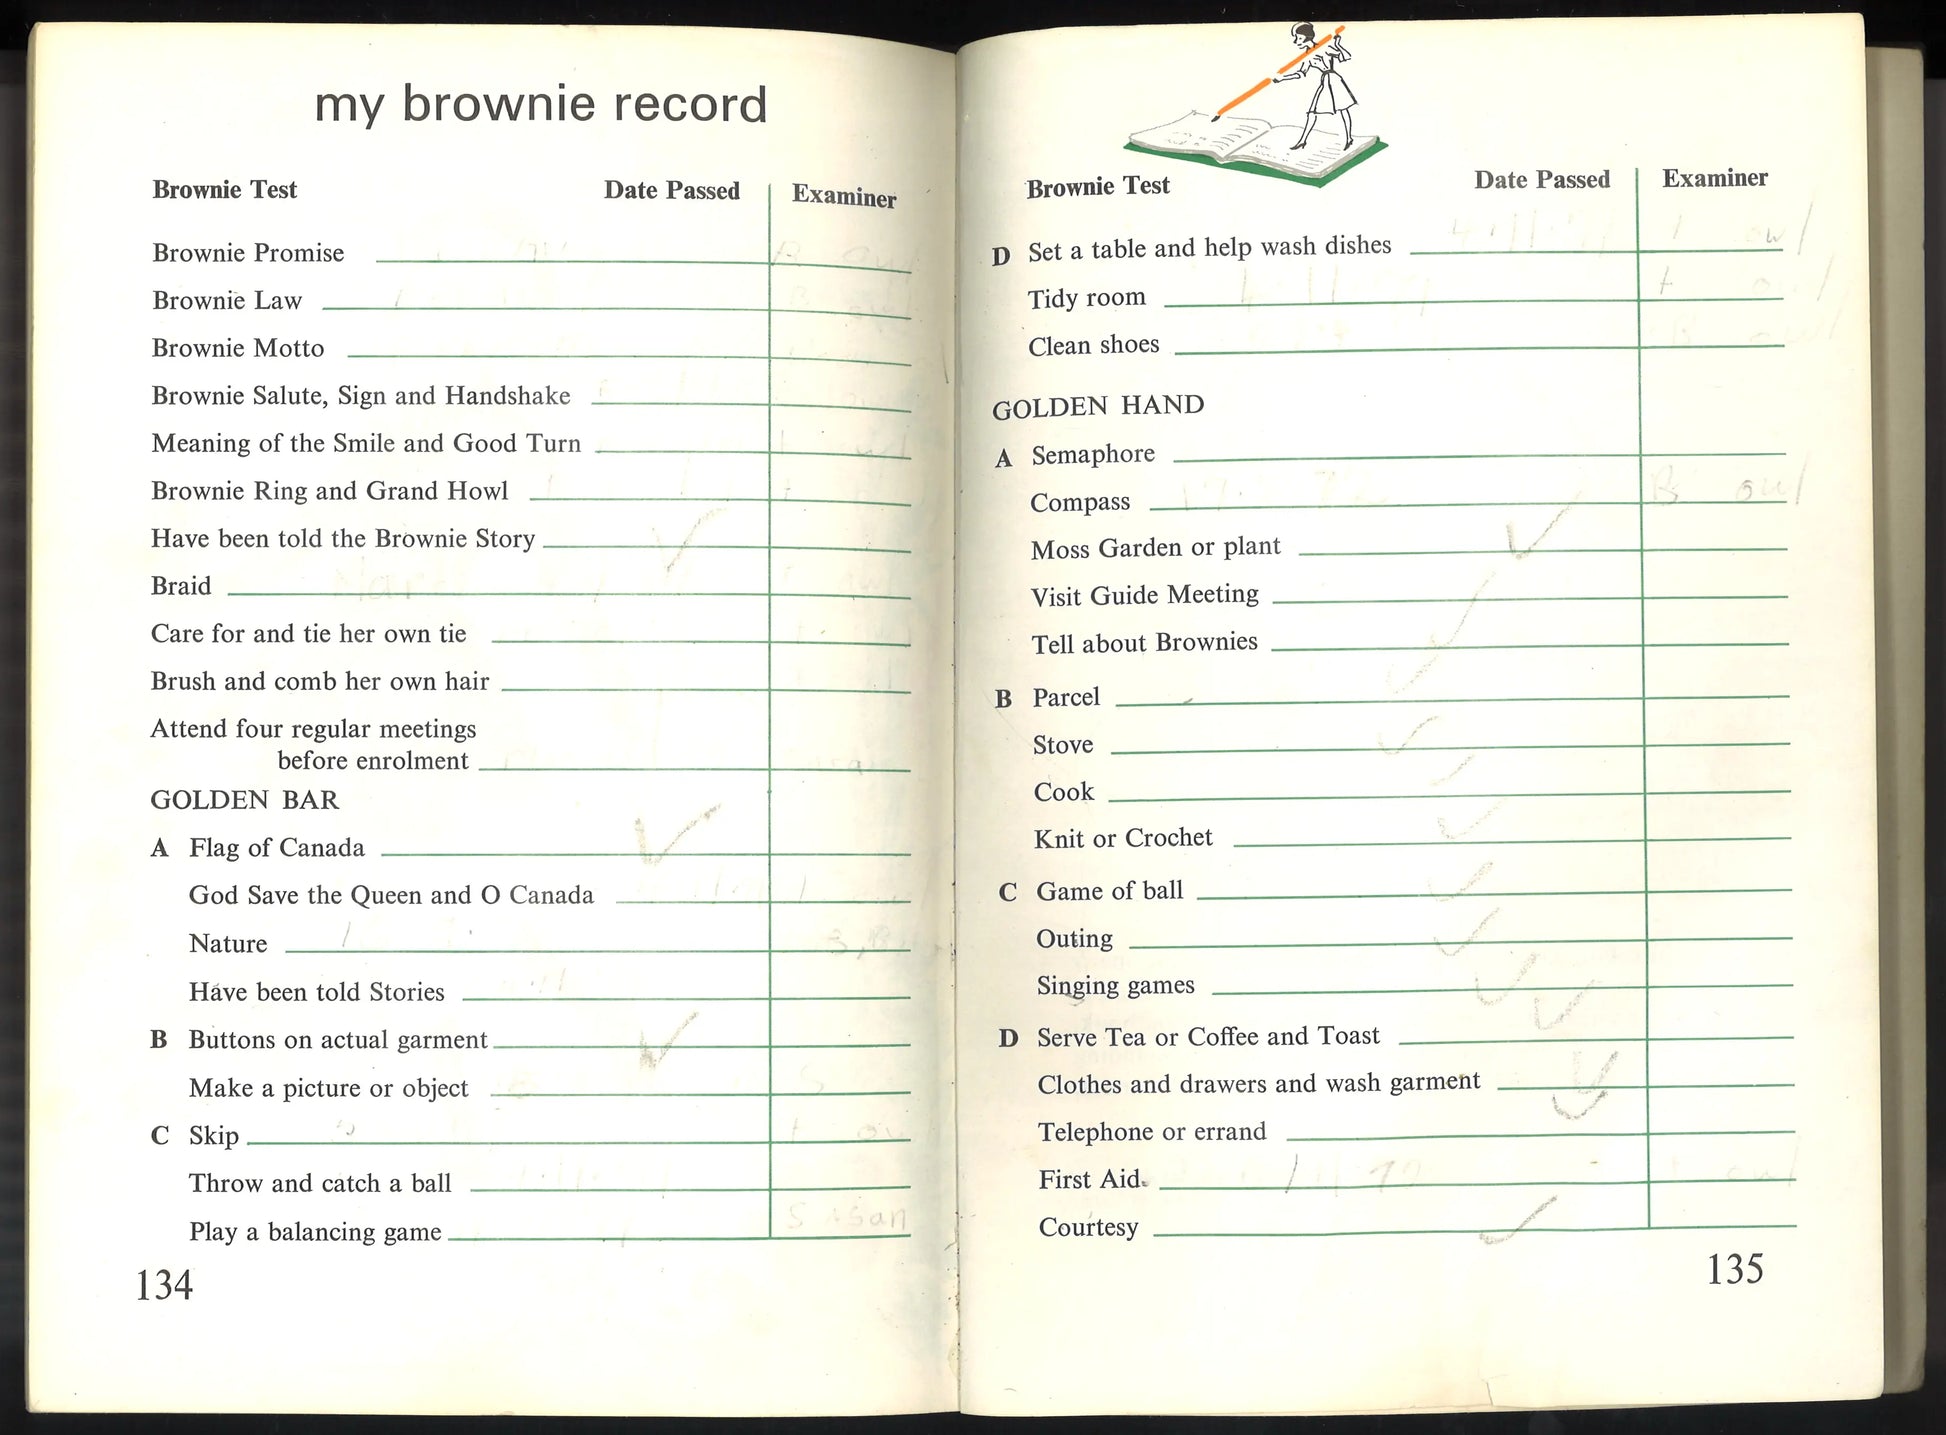 my brownie record
Brownie Test Date Passed Examiner
Brownie Promise
Brownie Law
Brownie Motto
Brownie Salute, Sign and Handshake
Meaning of the Smile and Good Turn
Brownie Ring and Grand Howl
Have been told the Brownie Story
Braid
Care for and tie her own tie
Brush and comb her own hair
Attend four regular meetings
before enrolment
GOLDEN BAR
A Flag of Canada
God Save the Queen and O Canada
Nature
Have been told Stories
B Buttons on actual garment
Make a picture or object
C Skip
Throw and catch a ball
Play a balancing game Susan
134
Brownie Test Date Passed Examiner
D Set a table and help wash dishes owl
Tidy room owl
Clean shoes owl
GOLDEN HAND
A Semaphore
Compass B owl
Moss Garden or plant
Visit Guide Meeting
Tell about Brownies
B Parcel
Stove
Cook
Knit or Crochet
C Game of ball
Outing
Singing games
D Serve Tea or Coffee and Toast
Clothes and drawers and wash garment
Telephone or errand
First Aid owl
Courtesy
135